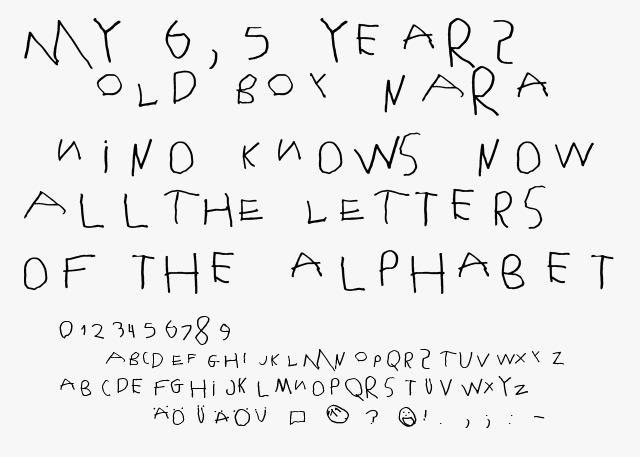 MY 6,5 YEARS
OLD BOY NARA
NiNO KNOWS NOW
ALL THE LETTERS
OF THE ALPHABET
0 1 2 3 4 5 6 7 8 9
ABCD EF GHI JKLMN OPQRS TUV WXY Z
AB CDE FGHi JK LMNOPQRS TUV WXYZ
ÄÖ Ü ÄÖÜ ? ! . , ; : -